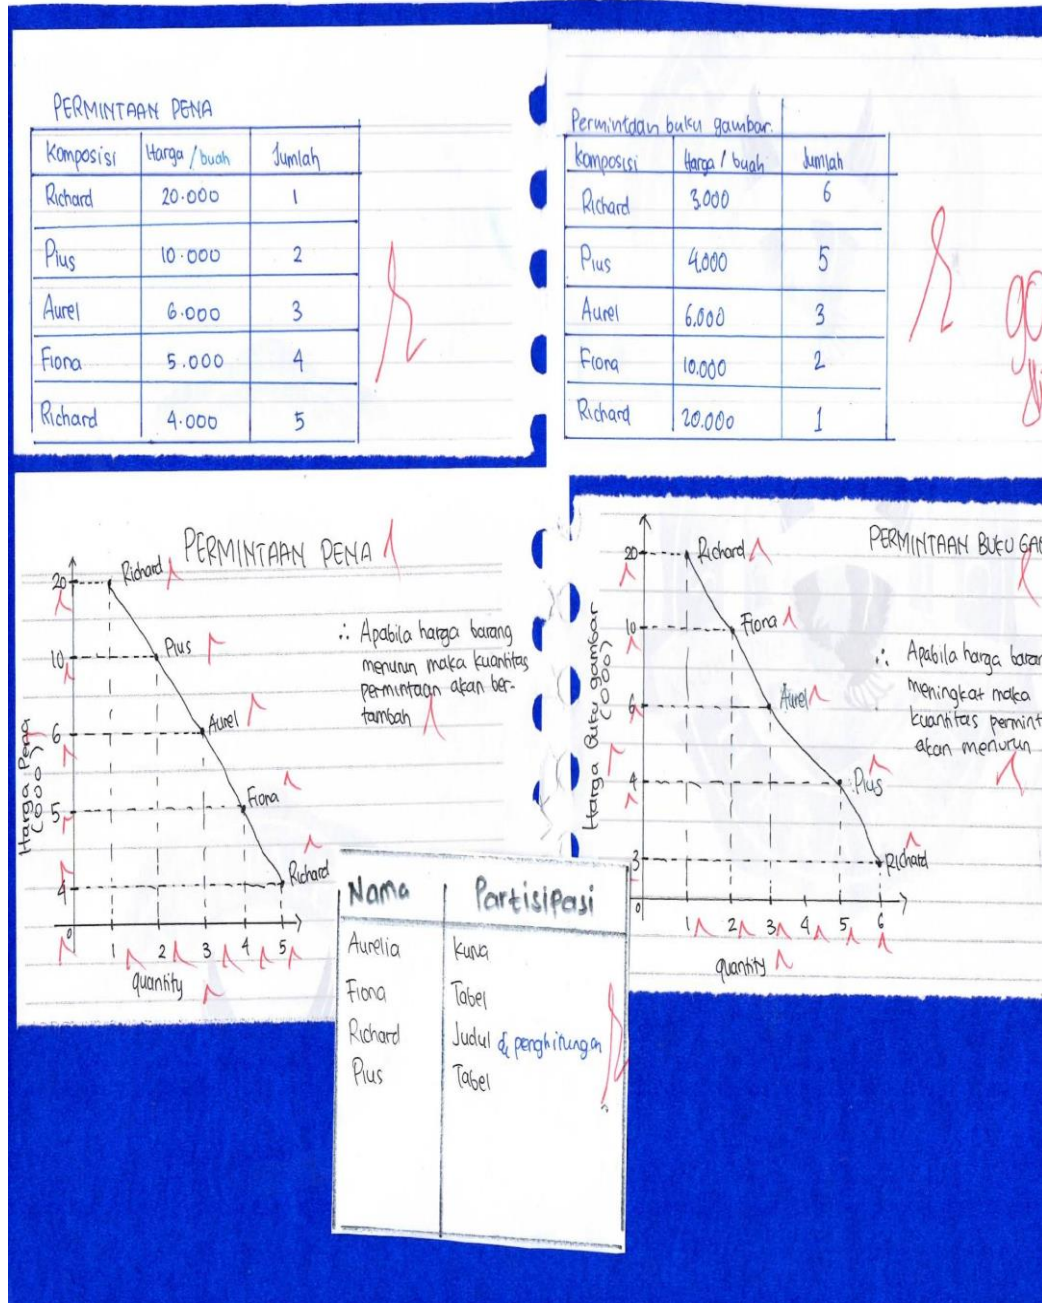 PERMINTAAN PENA
Komposisi Harga / buah Jumlah
Richard 20.000 1
Pius 10.000 2
Aurel 6.000 3
Fiona 5.000 4
Richard 4.000 5
Permintaan buku gambar.
Komposisi Harga / buah Jumlah
Richard 3.000 6
Pius 4.000 5
Aurel 6.000 3
Fiona 10.000 2
Richard 20.000 1
PERMINTAAN PENA
20
10
6
5
4
0
Richard
Pius
Aurel
Fiona
Richard
Harga Pena
(000)
1 2 3 4 5
quantity
∴ Apabila harga barang
menurun maka kuantitas
permintaan akan ber-
tambah
PERMINTAAN BUKU GA
20
10
6
4
3
0
Richard
Fiona
Aurel
Pius
Richard
Harga Buku gambar
(000)
1 2 3 4 5 6
quantity
∴ Apabila harga baran
meningkat maka
kuantitas permint
akan menurun
Nama Partisipasi
Aurelia Kurva
Fiona Tabel
Richard Judul & penghitungan
Pius Tabel